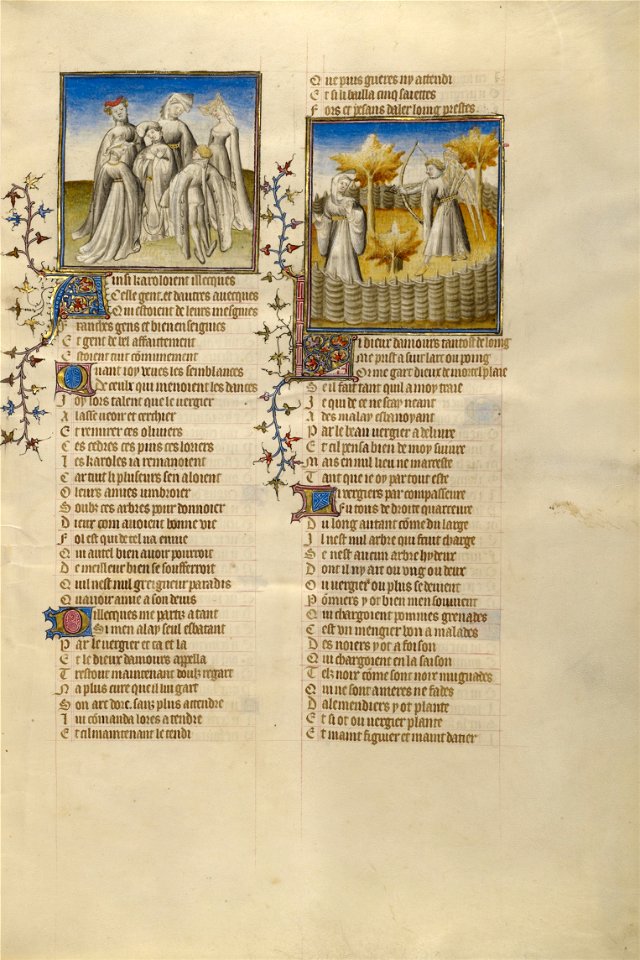 Ainsi karoloient illecques
Celle gent. et dautres avecques
Qui estoient de leurs mesgnies
Franches gens et bien enseignies
Et gent de bel affaictement
Estoient tuit communement
Quant ioy veues les semblances
De ceulx qui menoient les dances
Joy lors talent que le vergier
Alasse veoir et cerchier
Et remirer ces oliviers
Ces cedres ces pins ces loriers
Les karoles ia remanoient
Car tuit li pluseurs sen aloient
O leurs amies umbroier
Soubz ces arbres pour donnoier
Dieux com avoient bonne vie
Fol est qui de tel na envie
Qui autel bien avoir pourroit
De meilleur bien se soufferroit
Quil nest nul greigneur paradis
Quavoir amie a son devis
Dillecques me partiz a tant
Si men alay seul esbatant
Par le vergier et ca et la
Et le dieux damours appella
Trestout maintenant doulz regart
Na plus cure que il lui gart
Son arc dore. sanz plus attendre
Lui comanda lores a tendre
Et cil maintenant le tendi
Que puis gueres ny attendi
Et si li bailla cinq saiettes
Fors et pesans daler loing prestes
Li dieux damours tantost de loing
me prist a suir larc ou poing
Or me gart dieux de mortel plaie
Se il fait tant quil a moy traie
Je qui de ce ne scay neant
Ades malay esbanoyant
Par le beau vergier a delivre
Et cil pensa bien de moy suivre
Mais en nul lieu ne marreste
Tant que ie oy par tout este
Li vergiers par compasseure
Fu tous de droite quarreure
Du long autant come du large
Il nest nul arbre qui fruit charge
Se nest aucun arbre hydeux
Dont il ny ait ou ung ou deux
Ou vergier ou plus se devient
Pomiers y ot bien men souvient
Qui chargoient pommes grenades
Cest un mengier bon a malades
Des noiers y ot a foison
Qui chargoient en la saison
Telz noix come sont noix muguades
Qui ne sont ameres ne fades
Dalemendiers y ot plante
Et si ot ou vergier plante
Et maint figuier et maint datier